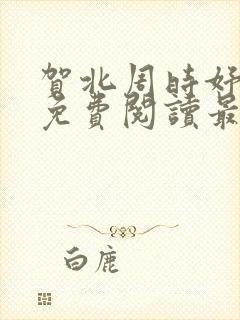 賀北周時好
免費閱讀最
白鹿